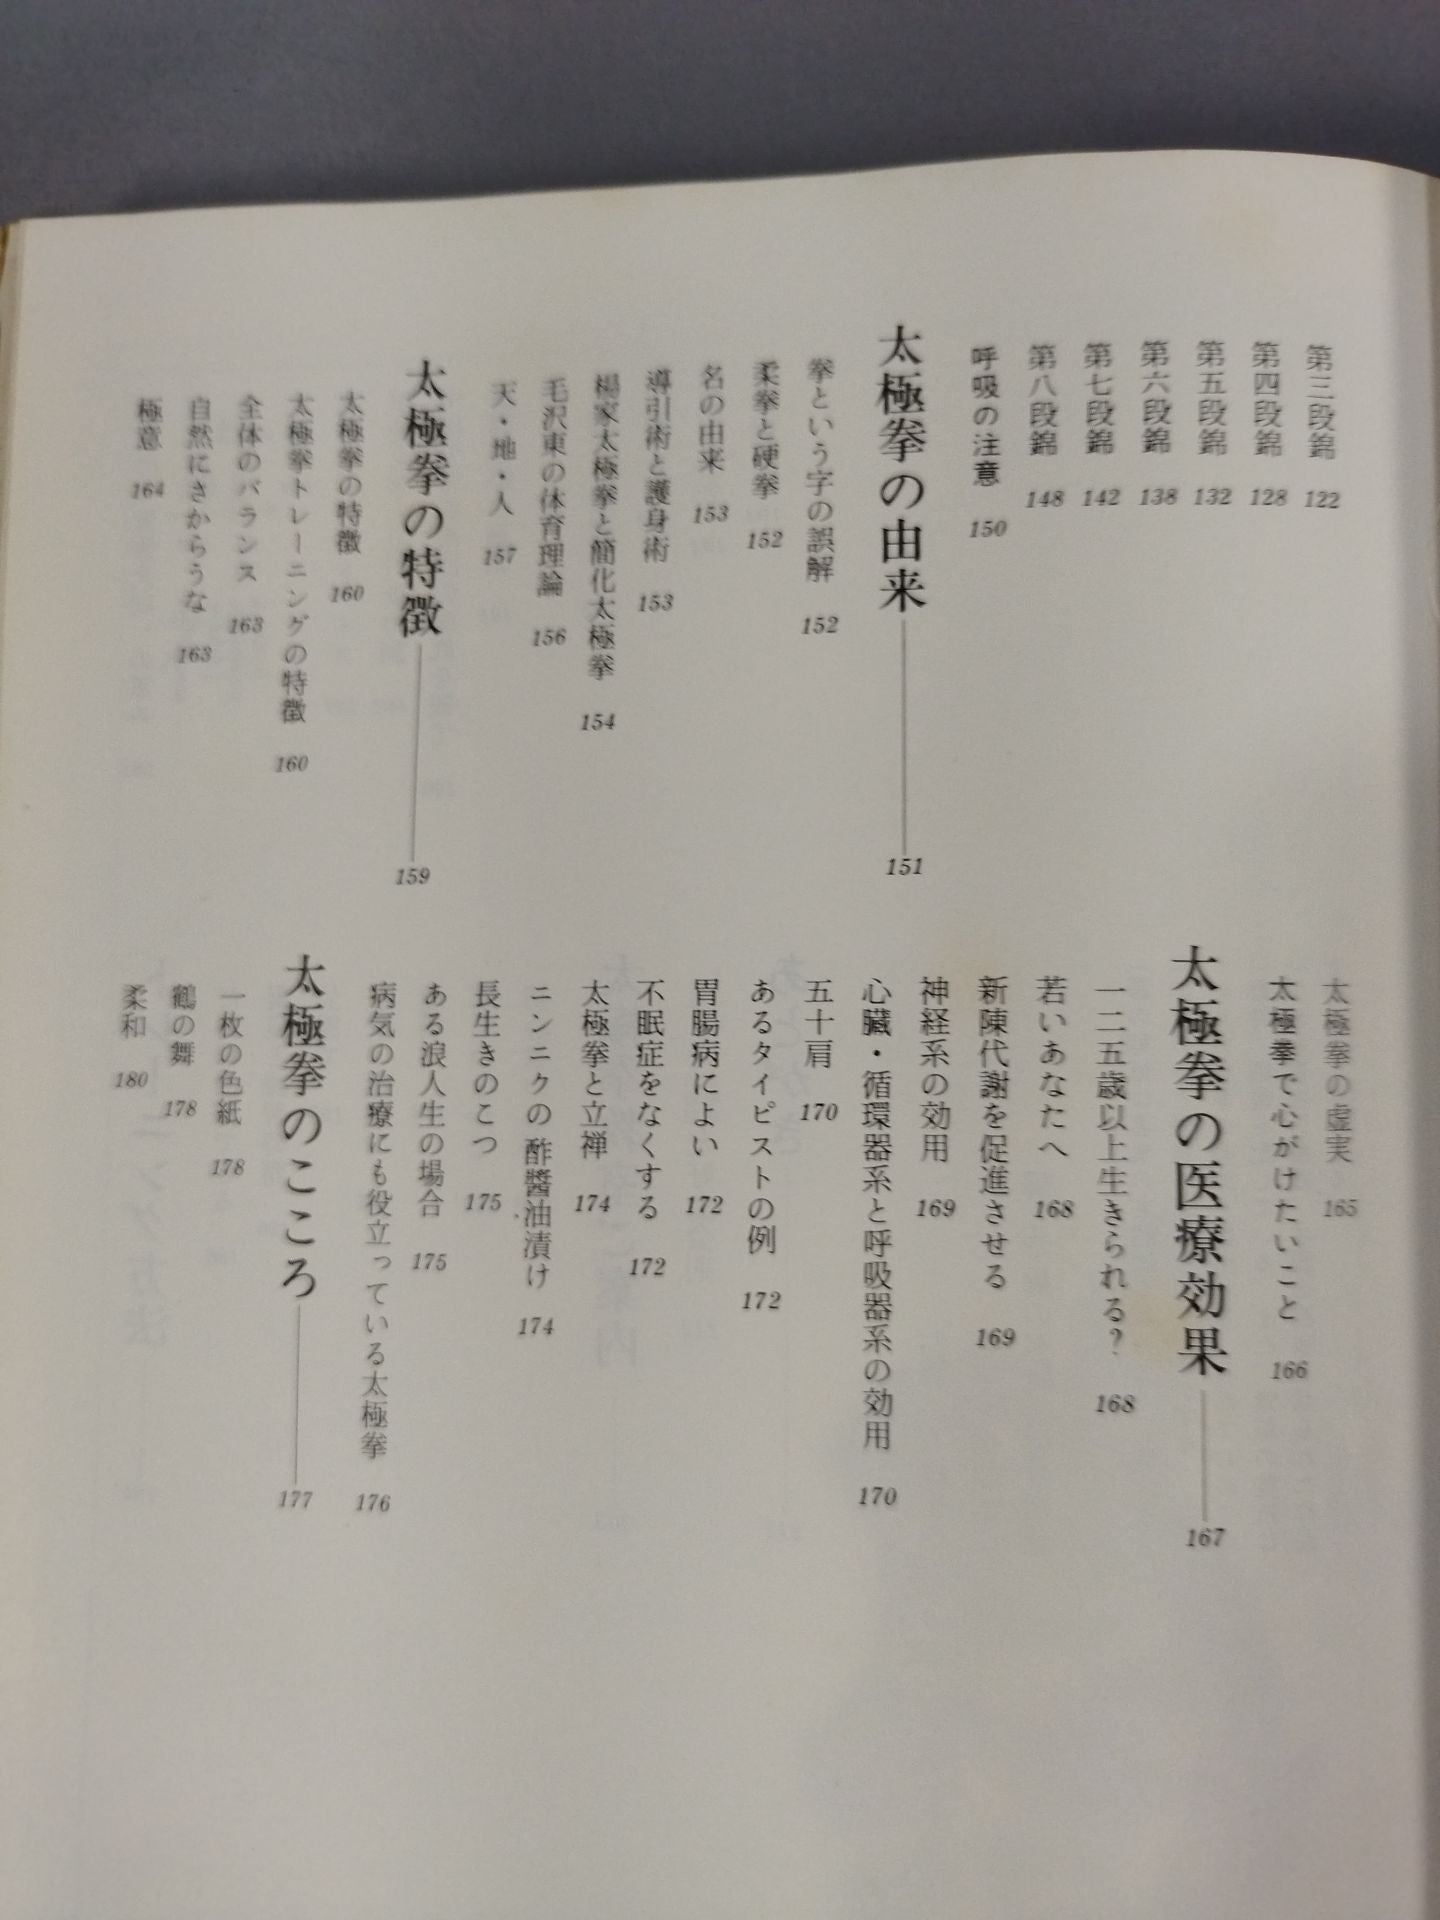 第三段錦 122
第四段錦 128
第五段錦 132
第六段錦 138
第七段錦 142
第八段錦 148
呼吸の注意 150
太極拳の由来 151
拳という字の誤解 152
柔拳と硬拳 152
名の由来 153
導引術と護身術 153
楊家太極拳と簡化太極拳 154
毛沢東の体育理論 156
天・地・人 157
太極拳の特徴 159
太極拳の特徴 160
太極拳トレーニングの特徴 160
全体のバランス 163
自然にさからうな 163
極意 164
太極拳の虚実 165
太極拳で心がけたいこと 166
太極拳の医療効果 167
一二五歳以上生きられる? 168
若いあなたへ 168
新陳代謝を促進させる 169
神経系の効用 169
心臓・循環器系と呼吸器系の効用 170
五十肩 170
あるタイピストの例 172
胃腸病によい 172
不眠症をなくする 172
太極拳と立禅 174
ニンニクの酢醬油漬け 174
長生きのこつ 175
ある浪人生の場合 175
病気の治療にも役立っている太極拳 176
太極拳のこころ 177
一枚の色紙 178
鶴の舞 178
柔和 180